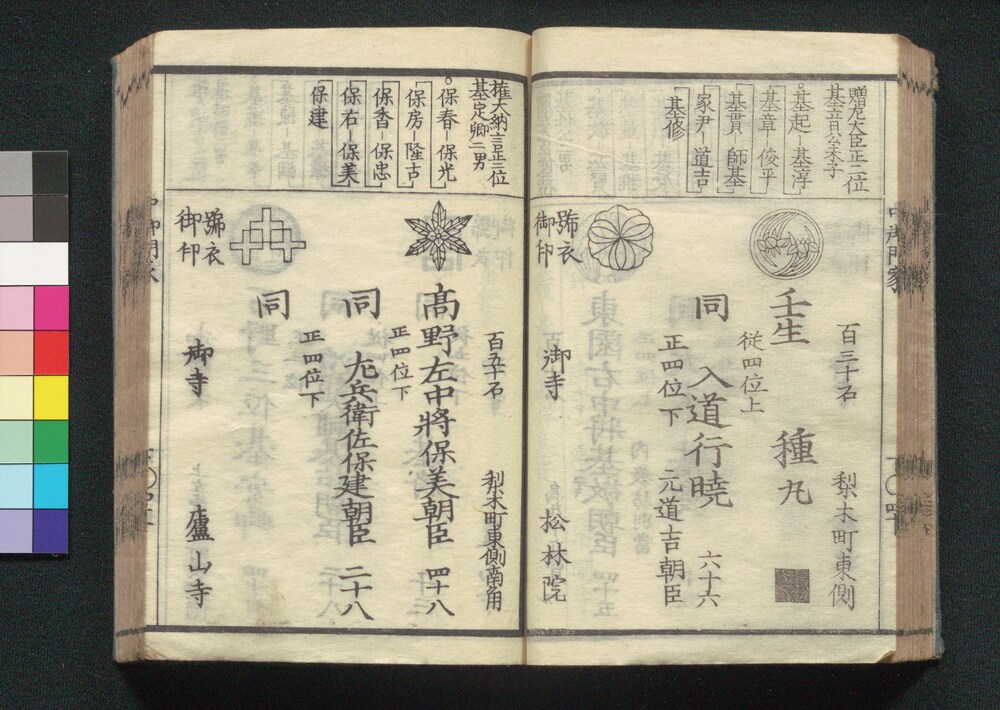 贈左大臣正二位
基音公末子
基起
基淳
基章
俊平
基貫
師基
家尹
道吉
基修
百三十石
梨木町東側
壬生
種丸
従四位上
同
入道行暁
六十六
正四位下
元道吉朝臣
号衣
御印
御寺
松林院
中御門家
権大納言正三位
基定卿二男
保春
保光
保房
隆古
保香
保忠
保右
保美
保建
百五十石
梨木町東側南角
高野左中将保美朝臣
四十八
正四位下
同
左兵衛佐保建朝臣
二十八
正四位下
同
号衣
御印
御寺
廬山寺